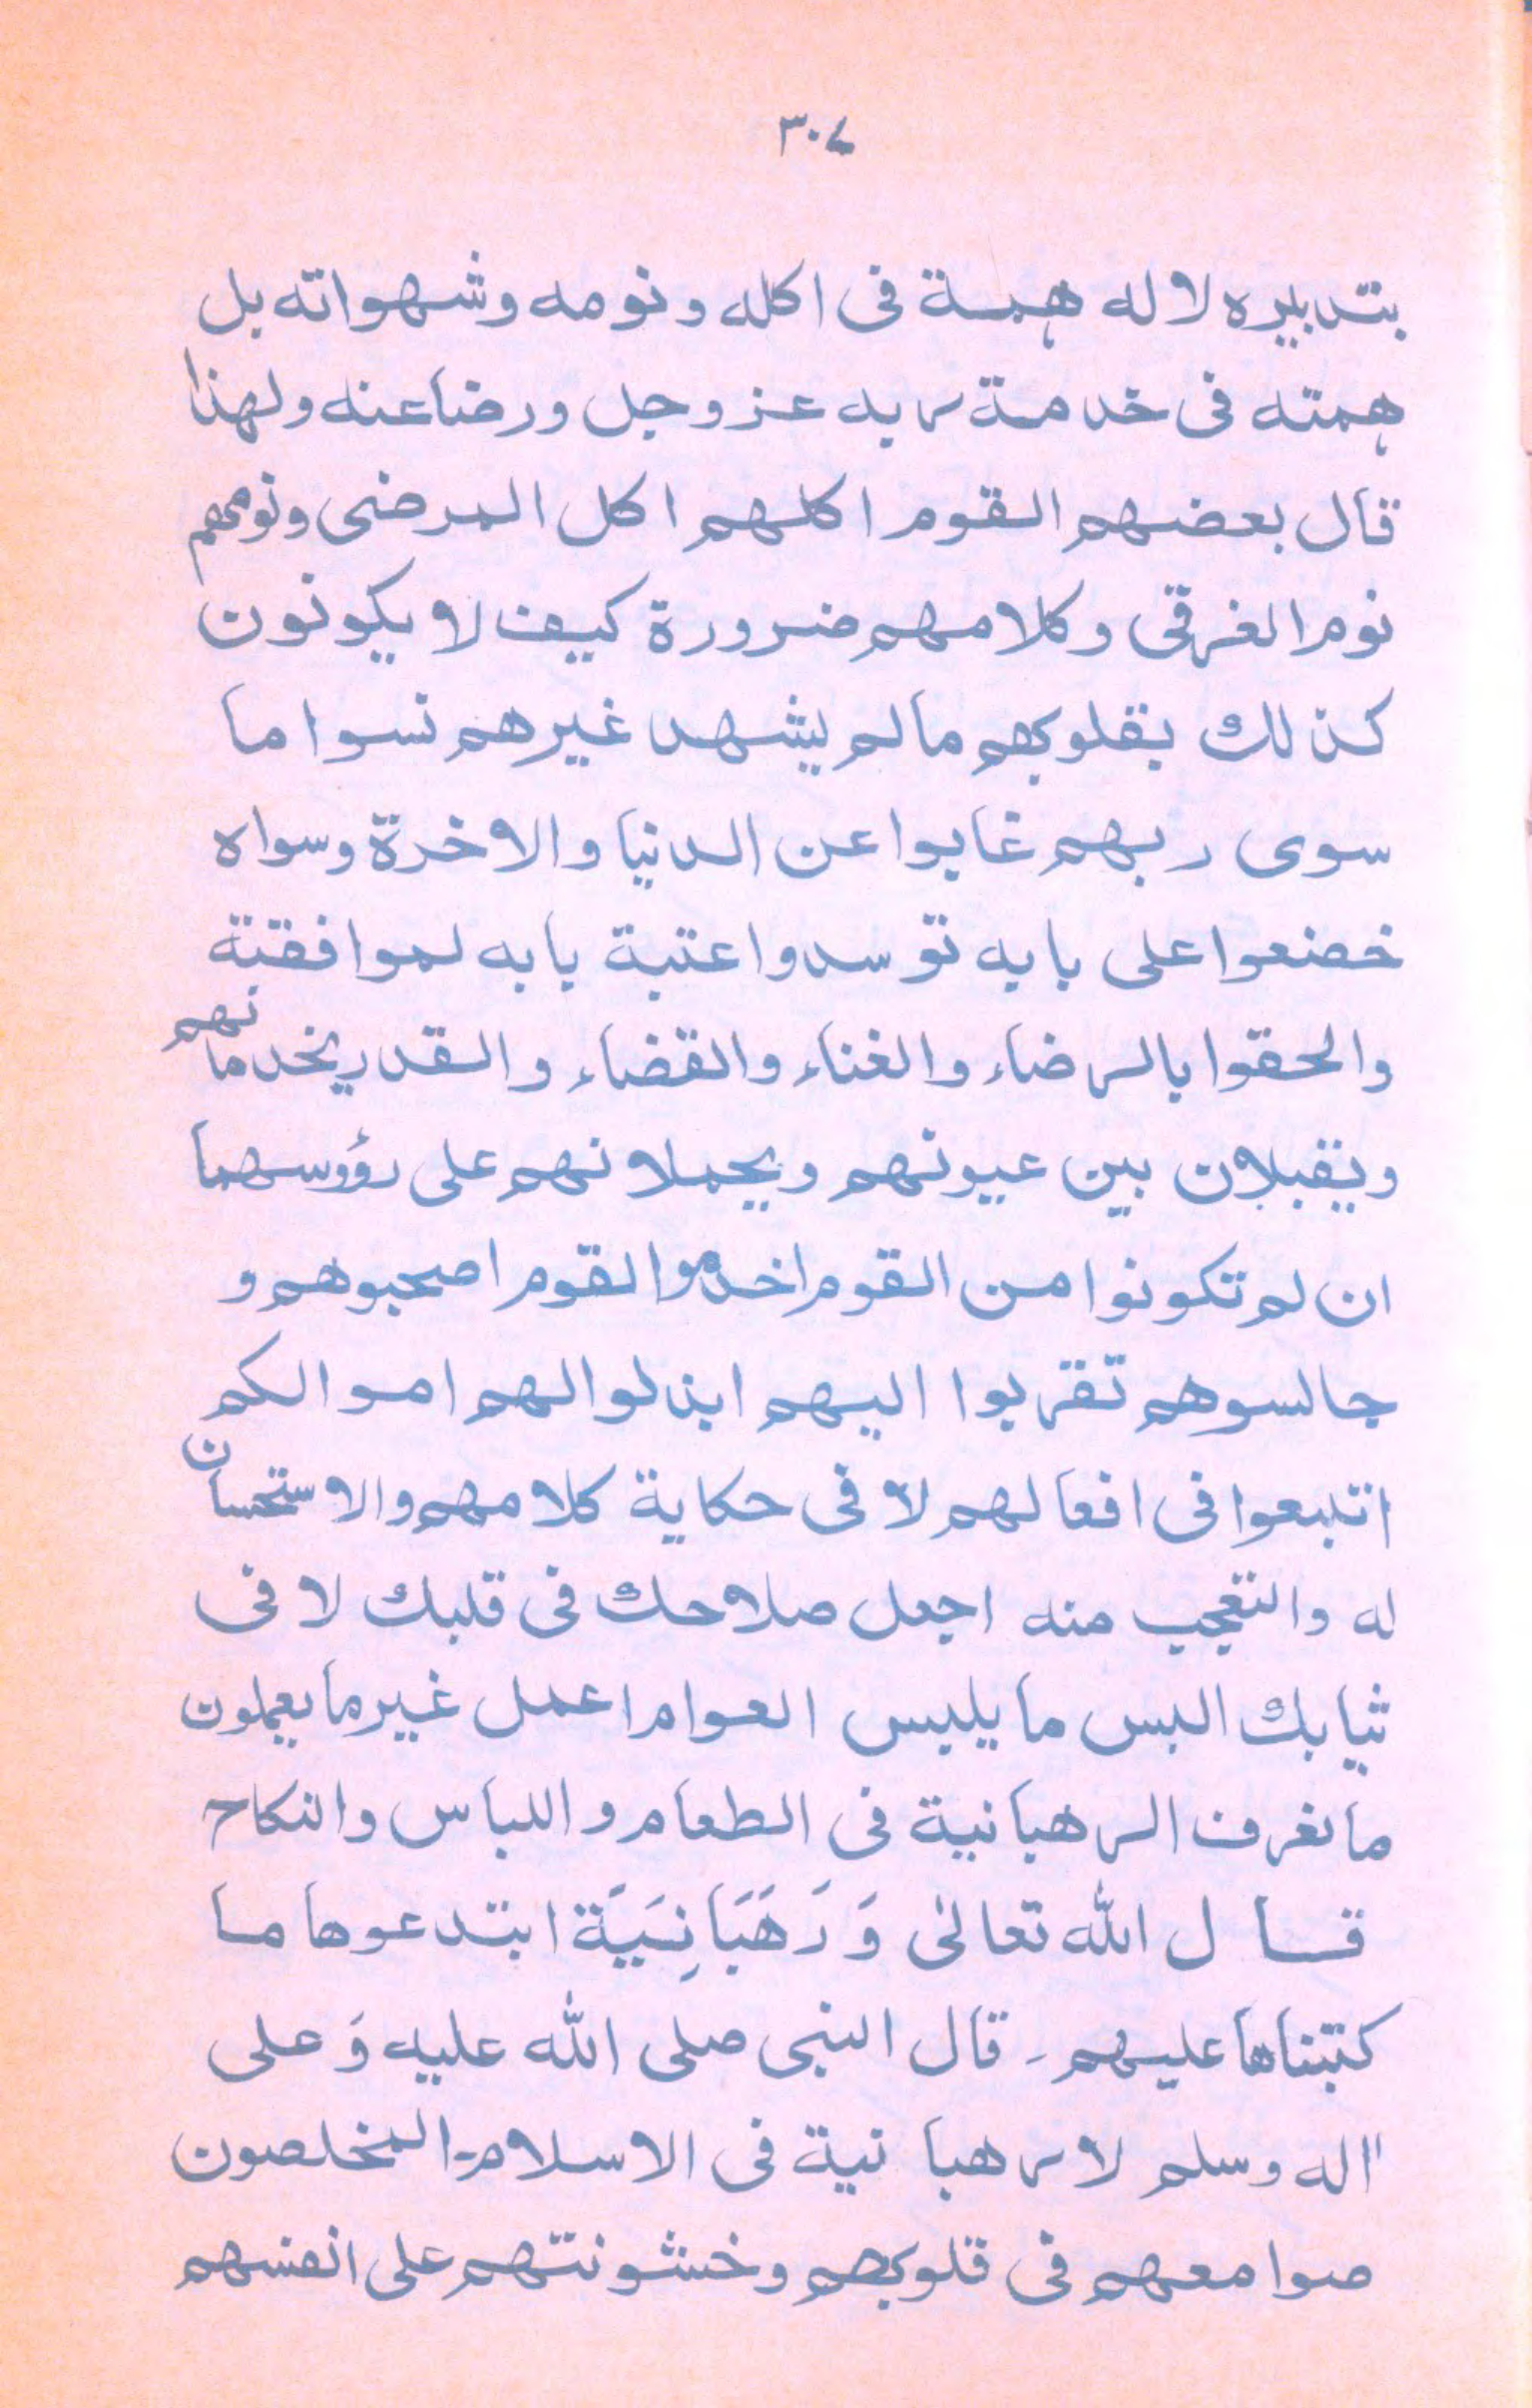 ۳۰۷
بتدبيره لا له همة فى اكله ونومه وشهواته بل
همته فى خدمة ربه عز وجل ورضا عنه ولهذا
قال بعضهم القوم اكلهم اكل المرضى ونومهم
نوم الغرقى وكلامهم ضرورة كيف لا يكونون
كذلك بقلوبهم ما لم يشهد غيرهم نسوا ما
سوى ربهم غابوا عن الدنيا والاخرة وسواه
خضعوا على بابه توسدوا عتبة بابه لموافقتة
والحقوا بالرضاء والغناء والقضاء والقدر يخدمانهم
ويقبلان بين عيونهم ويحملانهم على رؤوسهما
ان لم تكونوا من القوم اخدموا القوم اصحبوهم و
جالسوهم تقربوا اليهم ابذلوا لهم اموالكم
اتبعوا فى افعالهم لا فى حكاية كلامهم والاستحسان
له والتعجب منه اجعل صلاحك فى قلبك لا فى
ثيابك البس ما يلبس العوام اعمل غير ما يعملون
ما نعرف الرهبانية فى الطعام و اللباس والنكاح
قال الله تعالىٰ وَ رَهَبَانِيَة ابتدعوها ما
كتبناها عليهم۔ قال النبى صلى الله عليه وَ على
اله وسلم لا رهبانية فى الاسلام۔ المخلصون
صوامعهم فى قلوبهم وخشونتهم على انفسهم